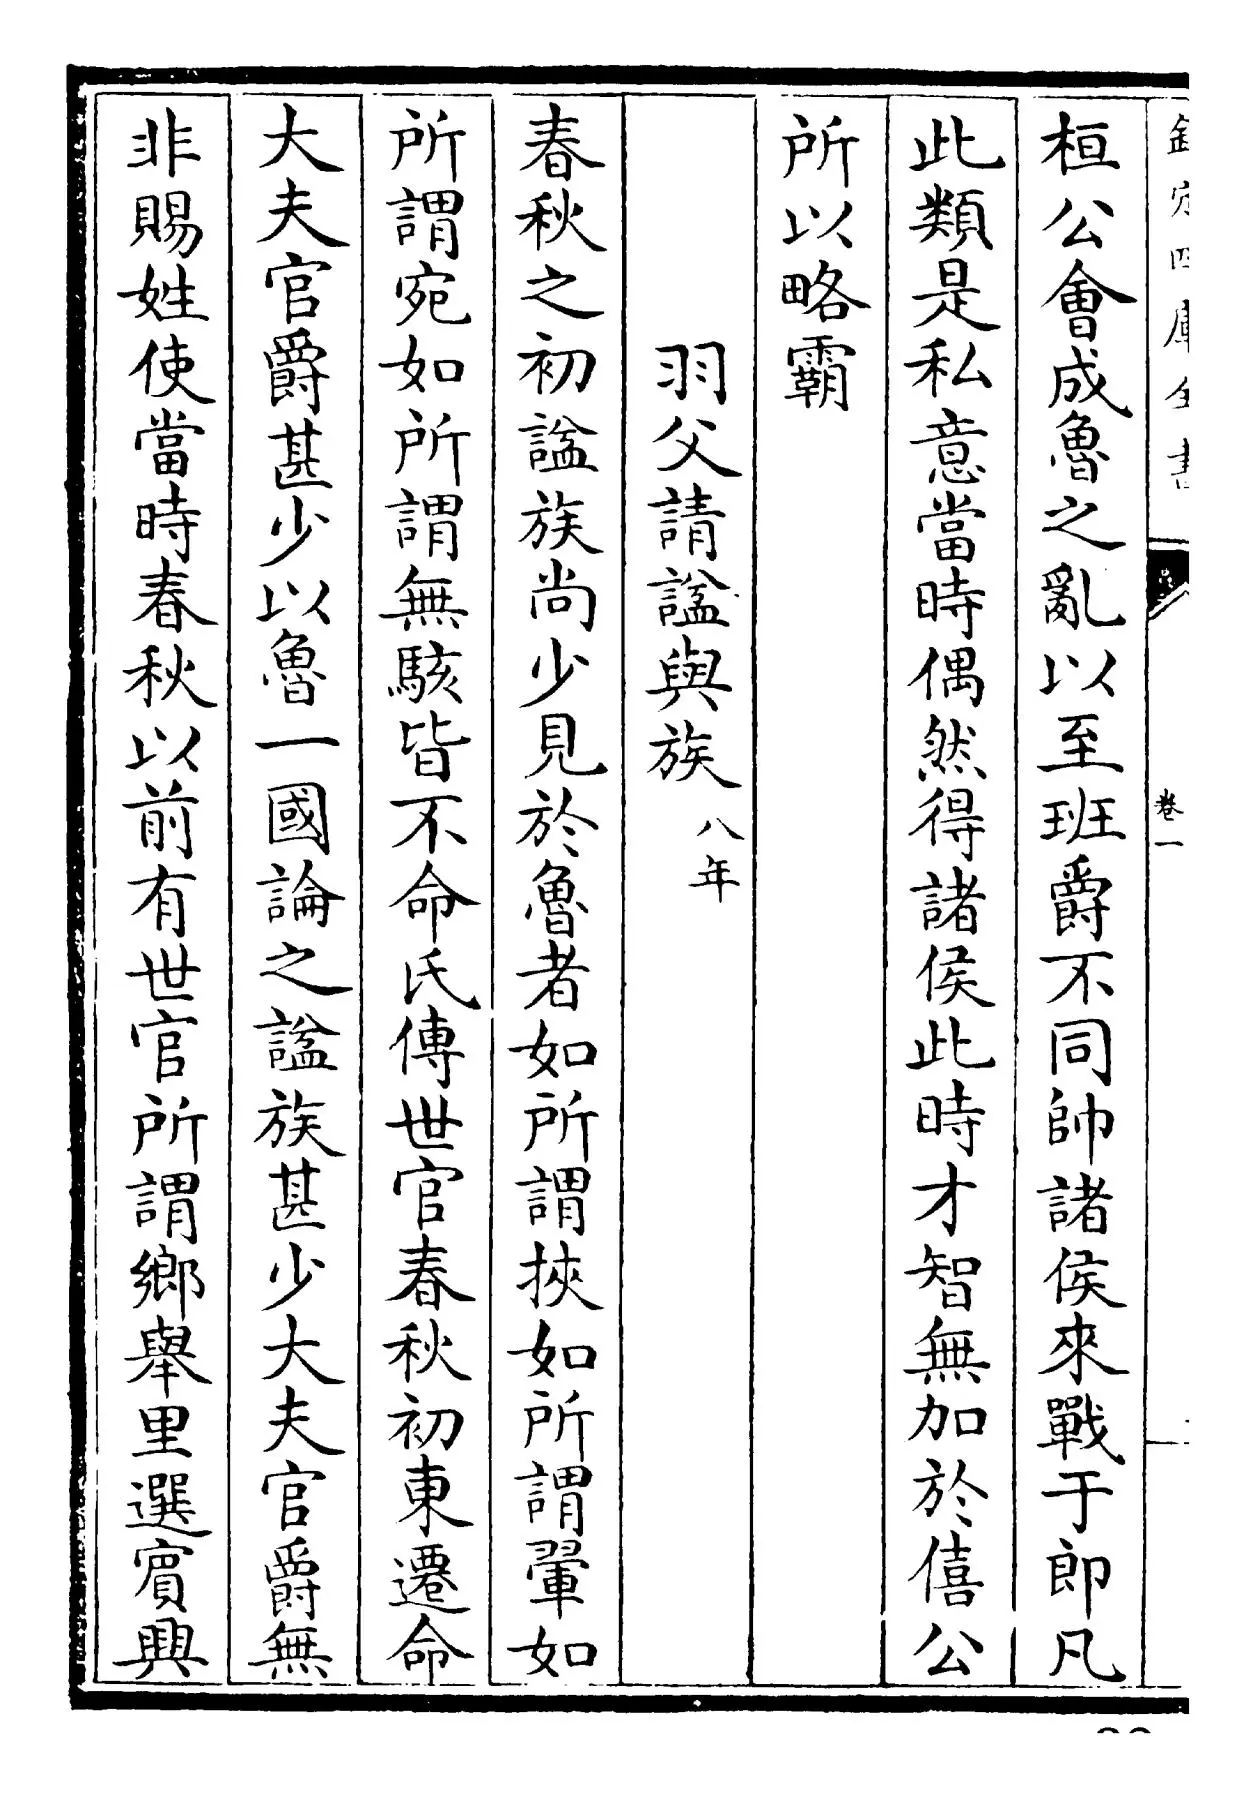 欽定四庫全書
卷一
桓公會成魯之亂以至班爵不同帥諸侯來戰于郎凡
此類是私意當時偶然得諸侯此時才智無加於僖公
所以略霸
羽父請諡與族八年
春秋之初諡族尚少見於魯者如所謂挾如所謂翬如
所謂宛如所謂無駭皆不命氏傳世官春秋初東遷命
大夫官爵甚少以魯一國論之諡族甚少大夫官爵無
非賜姓使當時春秋以前有世官所謂鄉舉里選賓興